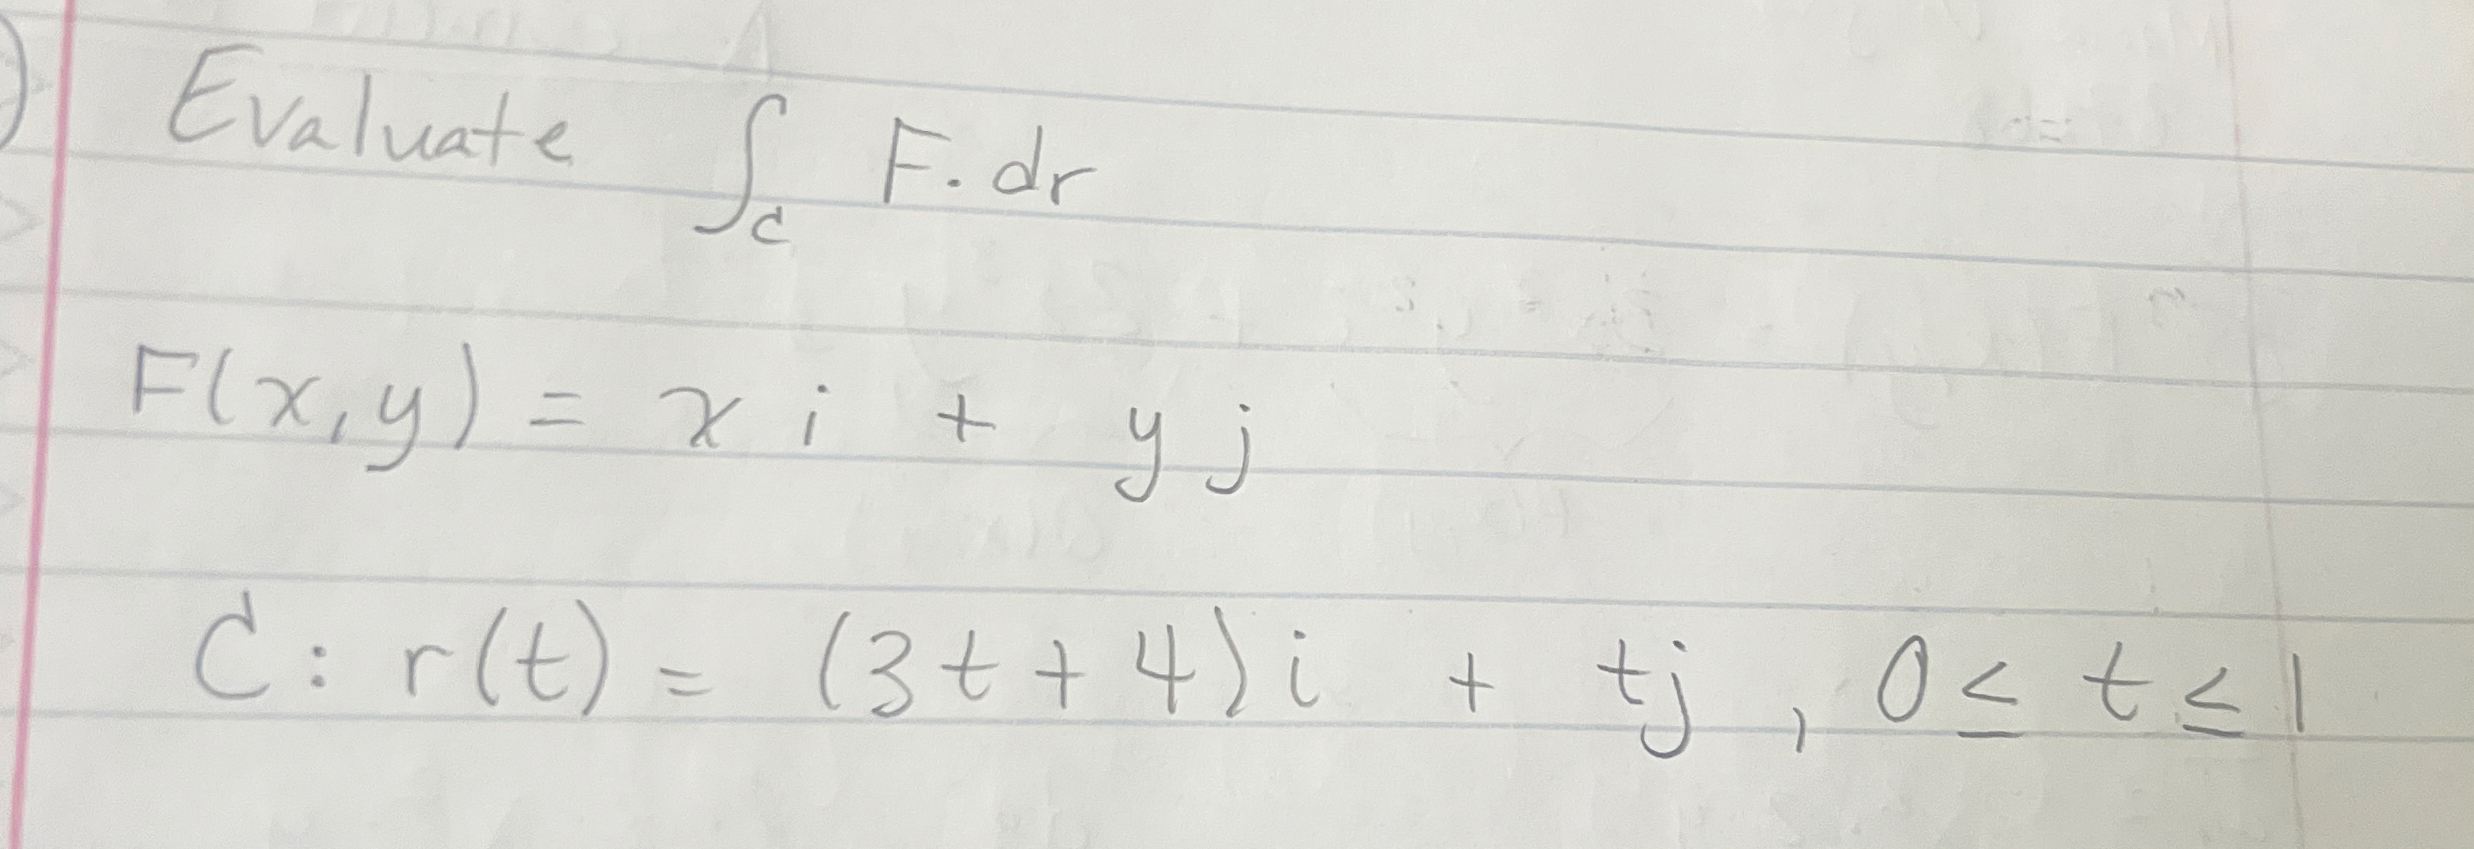 Evaluate ∫_C F. dr
F(x,y) = x i + y j
C: r(t) = (3t + 4) i + tj , 0 ≤ t ≤ 1